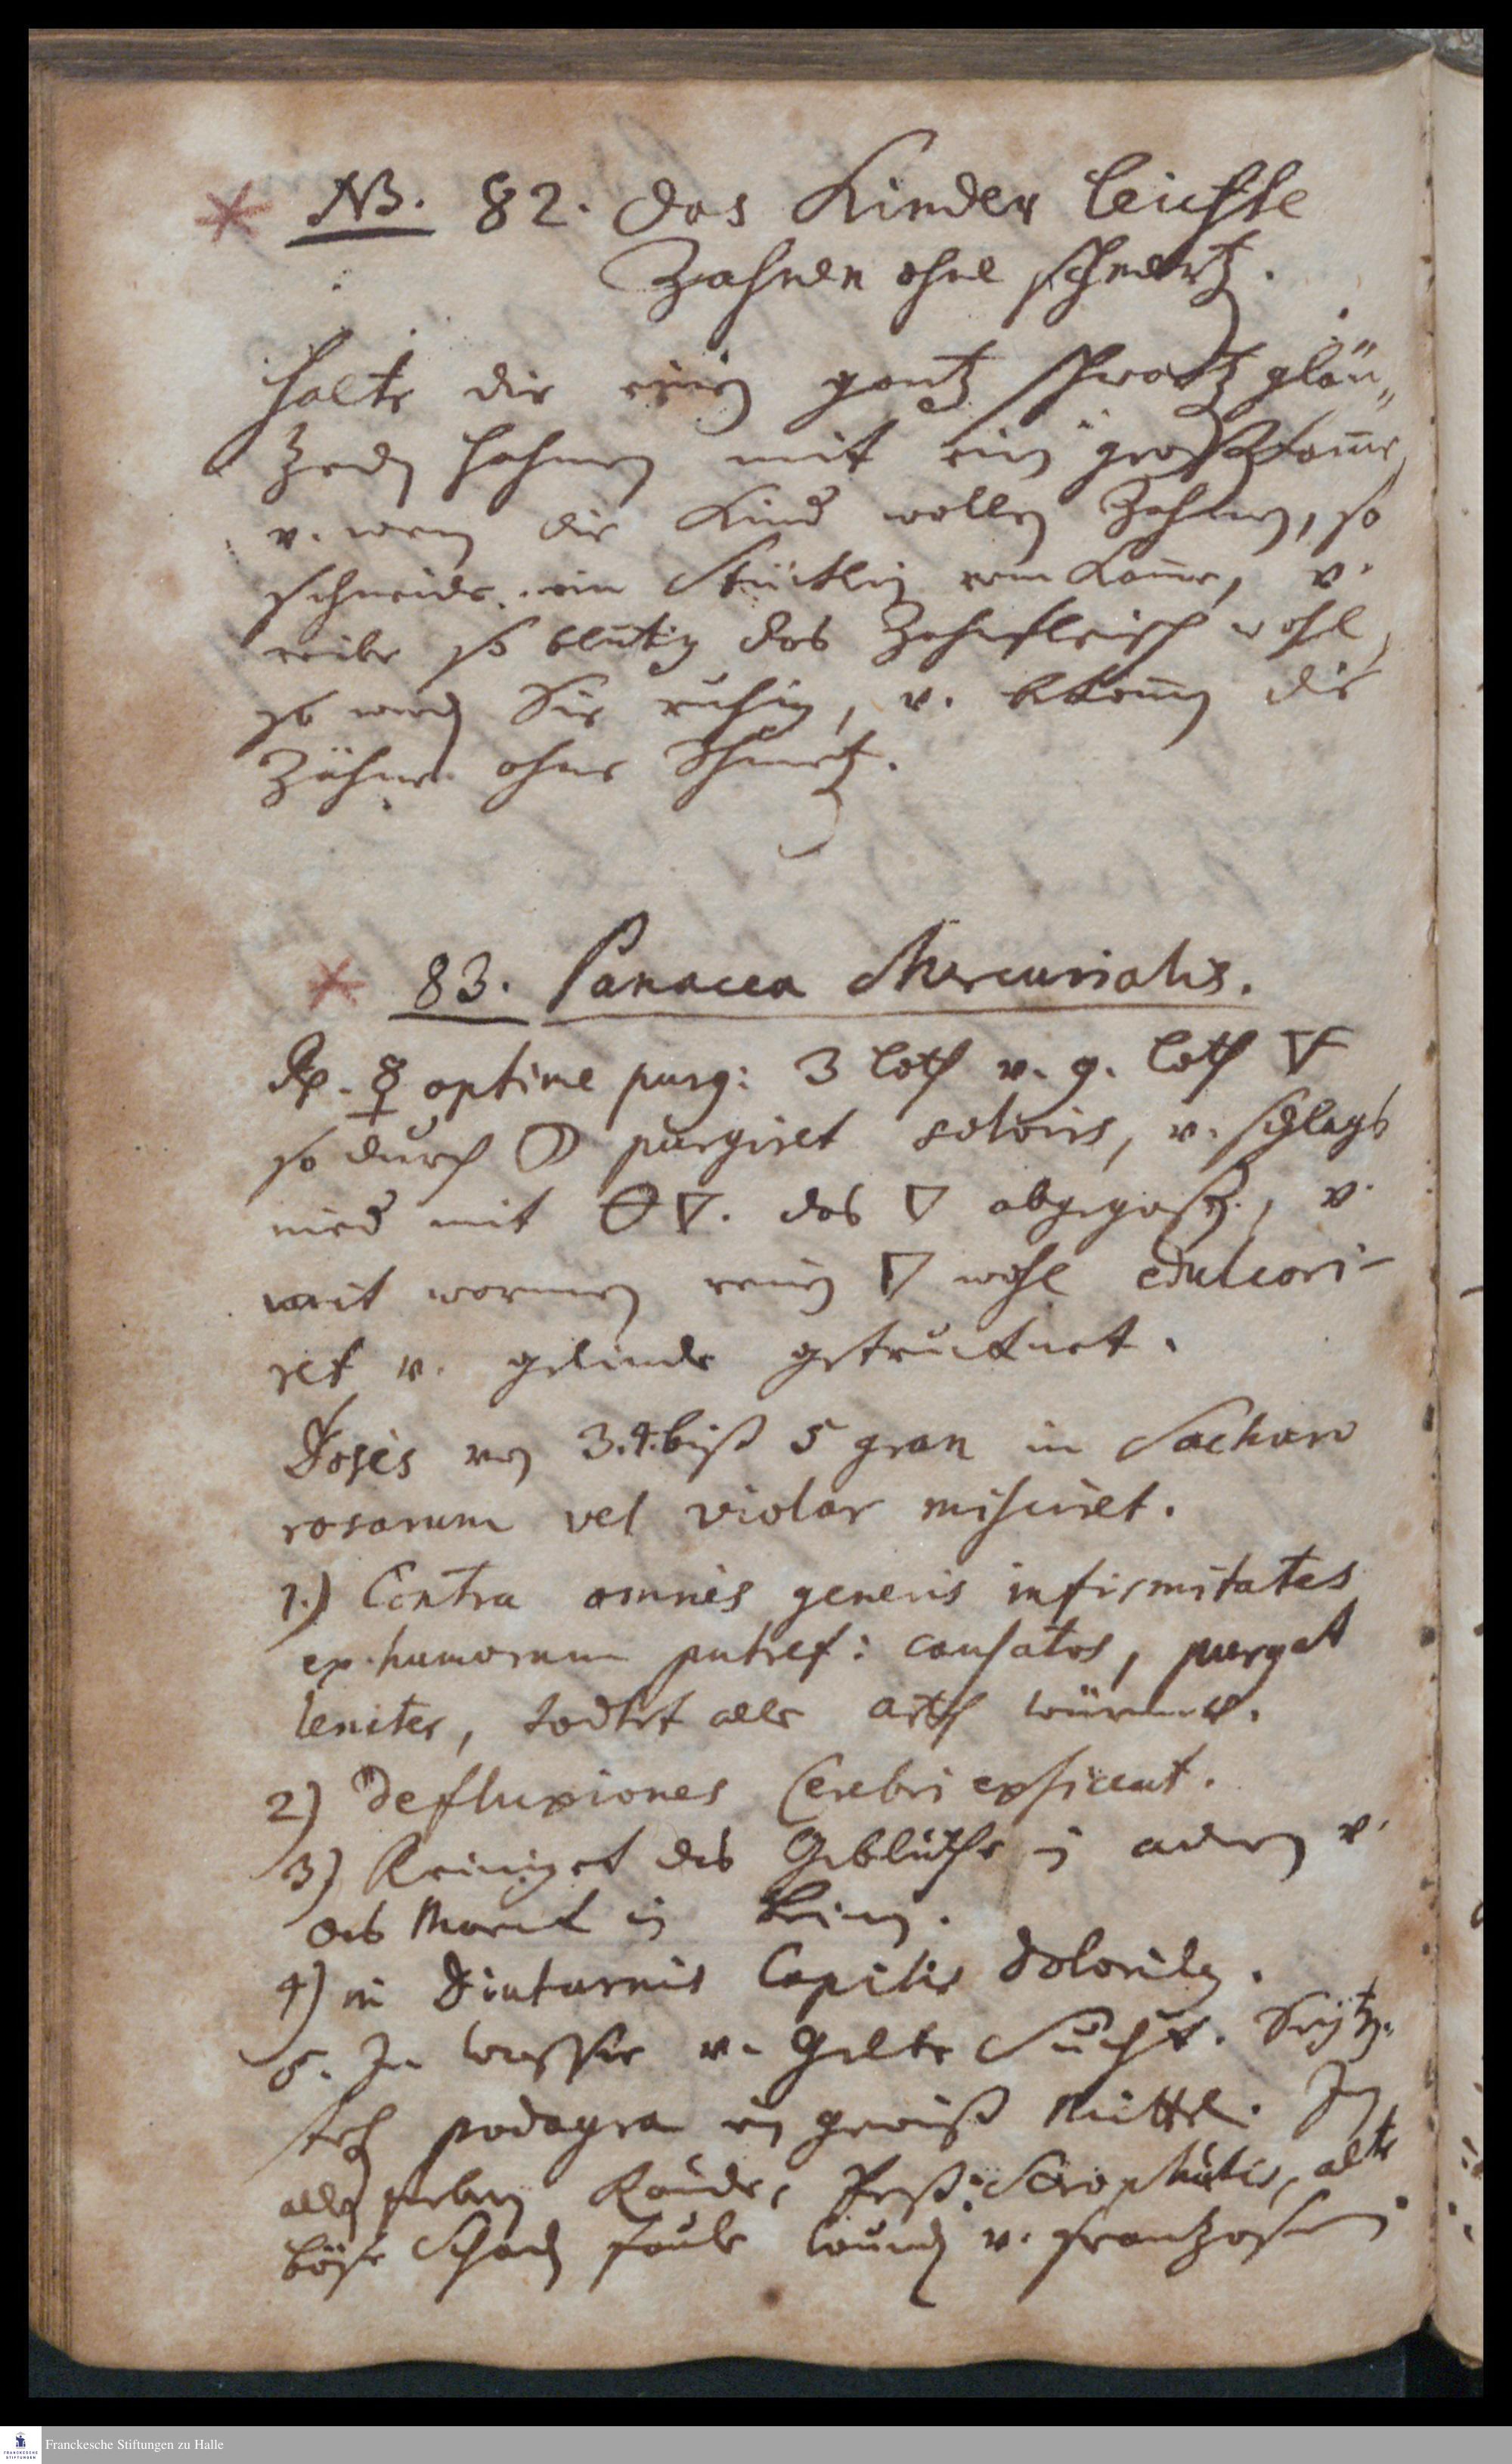 NB. 82. Das Kinder leichte
Zahnen ohne schmertz.
Halte dir einen gantz schwartz glän„
zenden Hahnen mit ein großen Kamme,
v. wenn die Kind wollen Zahnen, so
schneide ein Stücklein vom Kamme, v.
reibe so blutig das Zahnfleisch wohl,
so werden Sie ruhig, v. bekommen die
Zähne ohne Schmertz.
83. Panacea Mercurialis.
Rp. ☿ optime purg: 3 loth v. 9. loth 🜅
so durch ☽ purgiret solviers, v. schlags
nied mit 🜔▽. das ▽ abgegoßen, v.
mit warmen reinen ▽ wohl edulcori-
ret v. gelinde getrucknet.
Dosis von 3.4.biß 5 gran in Sacharo
rosarum vel violar misciret.
1.) Contra omnis generis infirmitates
ex humorum putref: causatos, purgat
leniter, todtet alle arth würmer.
2) Defluxiones Cerebri exsiccat.
3) Reiniget das Geblüthe in adern v.
das Marck in Beinen.
4) in Diuturnis Capitis doloribus.
5. In Wasser v. Gelbe Sucht.
podagra ein gewiß Mittel. In
allen Räude, Peste, alte
böse Schaden faule Wunden v. frantzosen
Franckesche Stiftungen zu Halle